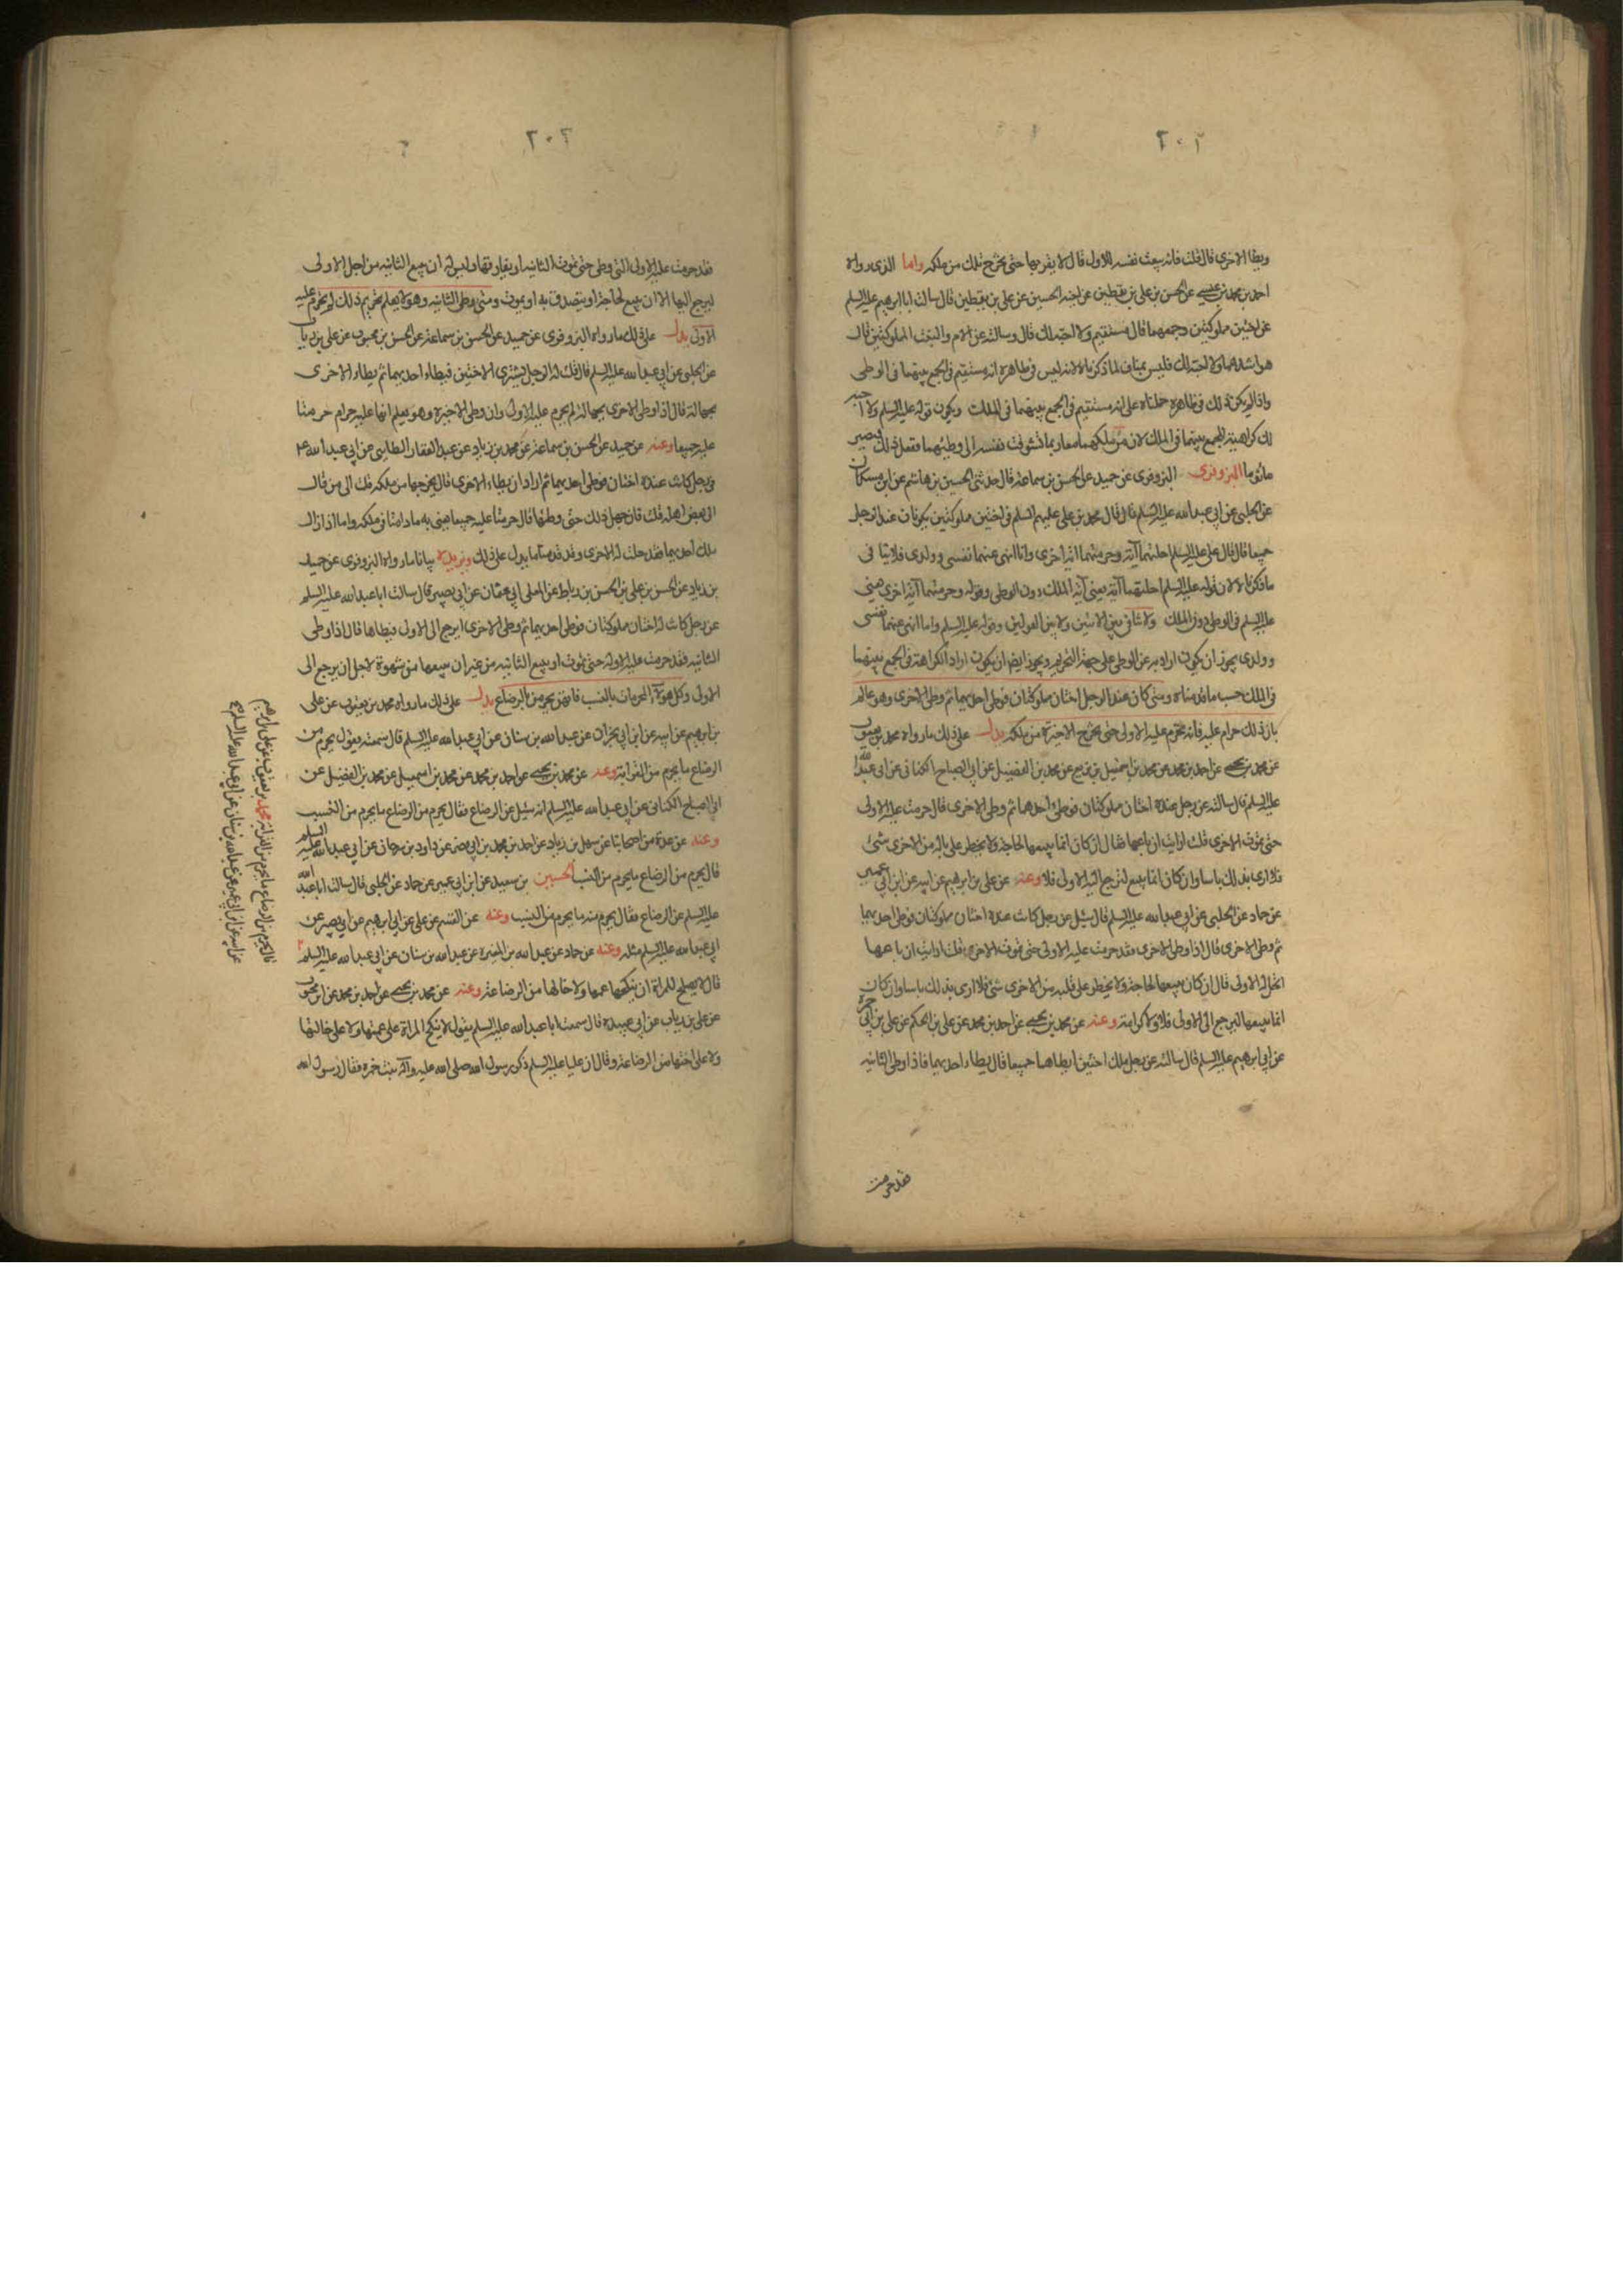 ٢٠٢
ويطا الاخرى قال قلت فانه يبعث نفسه للاول قال لا يقربها حتى تخرج تلك من ملكه واما الذى رواه
احمد بن محمد بن عيسى عن الحسن بن على بن يقطين عن اخيه الحسين عن على بن يقطين قال سالت ابا ابرهيم عليه السلم
عن اختين مملوكتين وجمعهما قال مستقيم ولا احبه لك قال وسالته عن الام والبنت المملوكتين قال
هو اشدهما ولا احبه لك فليس بمناف لما ذكرناه لانه ليس فى ظاهره انه مستقيم فى الجمع بينهما فى الوطى
واذا لم يكن ذلك فى ظاهره حملناه على انه مستقيم فى الجمع بينهما فى الملك ويكون قوله عليه السلم ولا احبه
لك كراهية الجمع بينهما فى الملك لان من ملكهما معا ربما تشوقت نفسه الى وطئهما ففعل ذلك فيصير
ماثوما البزوفرى البزوفرى عن حميد عن الحسن بن سماعة قال حدثنى الحسين بن هاشم عن ابن مسكان
عن الحلبى عن ابى عبد الله عليه السلم قال قال محمد بن على عليهم السلم فى اختين مملوكتين يكونان عند الرجل
جميعا قال قال على عليه السلم احلتهما آية وحرمتهما آية اخرى وانا انهى عنهما نفسى وولدى فلا ينافى
ما ذكرناه لان قوله عليه السلم احلتهما آية يعنى آية الملك دون الوطى وقوله وحرمتهما آية اخرى يعنى
عليه السلم فى الوطى دون الملك ولا تنافى بين الايتين ولا بين القولين وقوله عليه السلم وانا انهى عنهما نفسى
وولدى يجوز ان يكون اراد به عن الوطى على جهة التحريم ويجوز ايضا ان يكون اراد الكراهة فى الجمع بينهما
فى الملك حسب ما قدمناه ومتى كان عند الرجل اختان مملوكتان فوطى احديهما ثم وطى الاخرى وهو عالم
بان ذلك حرام عليه فانه تحرم عليه الاولى حتى تخرج الاخيرة من ملكه يدل على ذلك ما رواه محمد بن يعقوب
عن محمد بن يحيى عن احمد بن محمد عن محمد بن اسمعيل بن بزيع عن محمد بن الفضيل عن ابى الصباح الكنانى عن ابى عبد الله
عليه السلم قال سالته عن رجل عنده اختان مملوكتان فوطى احدهما ثم وطى الاخرى قال حرمت عليه الاولى
حتى تموت الاخرى قلت ارايت ان باعها فقال ان كان انما يبيعها لحاجة ولا يخطر على باله من الاخرى شئ
فلا ارى بذلك باسا وان كان انما يبيع لترجع اليه الاولى فلا وعنه عن على بن ابرهيم عن ابيه عن ابن ابى عمير
عن حماد عن الحلبى عن ابى عبد الله عليه السلم قال سئل عن رجل كانت عنده اختان مملوكتان فوطى احديهما
ثم وطى الاخرى قال اذا وطى الاخرى فقد حرمت عليه الاولى حتى تموت الاخرى قلت ارايت ان باعها
اتحل له الاولى قال ان كان يبيعها لحاجة ولا يخطر على قلبه من الاخرى شئ فلا ارى بذلك باسا وان كان
انما يبيعها ليرجع الى الاولى فلا ولا كرامة وعنه عن محمد بن يحيى عن احمد بن محمد عن على بن الحكم عن على بن ابى حمزة
عن ابى ابرهيم عليه السلم قال سالته عن رجل ملك اختين ايطاهما جميعا قال يطاء احديهما فاذا وطى الثانيه
فقد حرمت
٢٠٣
فقد حرمت عليه الاولى التى وطى حتى تموت الثانيه او يفارقها وليس له ان يبيع الثانيه من اجل الاولى
ليرجع اليها الا ان يبيع لحاجة او يتصدق به او يموت ومتى وطى الثانيه وهو لا يعلم تحريم ذلك لم تحرم عليه
الاولى يدل على ذلك ما رواه البزوفرى عن حميد عن الحسن بن سماعة عن الحسن بن محبوب عن على بن رياب
عن الحلبى عن ابى عبد الله عليه السلم قال قلت له الرجل يشترى الاختين فيطاء احديهما ثم يطاء الاخرى
بجهالة قال اذا وطى الاخرى بجهالة لم يحرم عليه الاولى وان وطى الاخيرة وهو يعلم انها عليه حرام حرمتا
عليه جميعا وعنه عن حميد عن الحسن بن سماعة عن محمد بن زياد عن عبد الغفار الطائى عن ابى عبد الله ع
فى رجل كانت عنده اختان فوطى احديهما ثم اراد ان يطاء الاخرى قال يخرجها من ملكه قلت الى من قال
الى بعض اهله قلت فان جهل ذلك حتى وطئها قال حرمتا عليه جميعا يعنى به ما دامتا فى ملكه واما اذا زال
ملك احديهما فقد حلت له الاخرى وقد قدمنا ما يدل على ذلك ويزيده بيانا ما رواه البزوفرى عن حميد
بن زياد عن الحسن بن على بن الحسن بن رباط عن المعلى ابى عثمان عن ابى بصير قال سالت ابا عبد الله عليه السلم
عن رجل كانت له اختان مملوكتان فوطى احديهما ثم وطى الاخرى ايرجع الى الاولى فيطاها قال اذا وطى
الثانيه فقد حرمت عليه الاولى حتى تموت او يبيع الثانيه من غير ان يبيعها من شهوة لاجل ان يرجع الى
الاولى وكل هؤلاء المحرمات بالنسب فانهن يحرمن بالرضاع يدل على ذلك ما رواه محمد بن يعقوب عن على
بن ابرهيم عن ابيه عن ابن ابى نجران عن عبد الله بن سنان عن ابى عبد الله عليه السلم قال سمعته يقول يحرم من
الرضاع ما يحرم من القرابة وعنه عن محمد بن يحيى عن احمد بن محمد عن محمد بن اسمعيل عن محمد بن الفضيل عن
ابى الصباح الكنانى عن ابى عبد الله عليه السلم انه سئل عن الرضاع فقال يحرم من الرضاع ما يحرم من النسب
وعنه عن عدة من اصحابنا عن سهل بن زياد عن احمد بن محمد بن ابى نصر عن داود بن سرحان عن ابى عبد الله عليه السلم
قال يحرم من الرضاع ما يحرم من النسب الحسين بن سعيد عن ابن ابى عمير عن حماد عن الحلبى قال سالت ابا عبد الله
عليه السلم عن الرضاع فقال يحرم منه ما يحرم من النسب وعنه عن القسم عن على عن ابى ابرهيم عن ابى بصير عن
ابى عبد الله عليه السلم مثله وعنه عن حماد عن عبد الله بن المغيرة عن عبد الله بن سنان عن ابى عبد الله عليه السلم
قال لا يصلح للمراة ان ينكحها عمها ولا خالها من الرضاعة وعنه عن محمد بن يحيى عن احمد بن محمد عن ابن محبوب
عن على بن رياب عن ابى عبيده قال سمعت ابا عبد الله عليه السلم يقول لا ينكح المراة على عمتها ولا على خالتها
ولا على اختها من الرضاعة وقال ان عليا عليه السلم ذكر رسول الله صلى الله عليه وآله بنت حمزة فقال رسول الله
قال يحرم من الرضاع ما يحرم من القرابة محمد بن يعقوب عن على بن ابرهيم
عن ابيه عن ابن ابى عمير عن عبد الله بن سنان عن ابى عبد الله عليه السلم